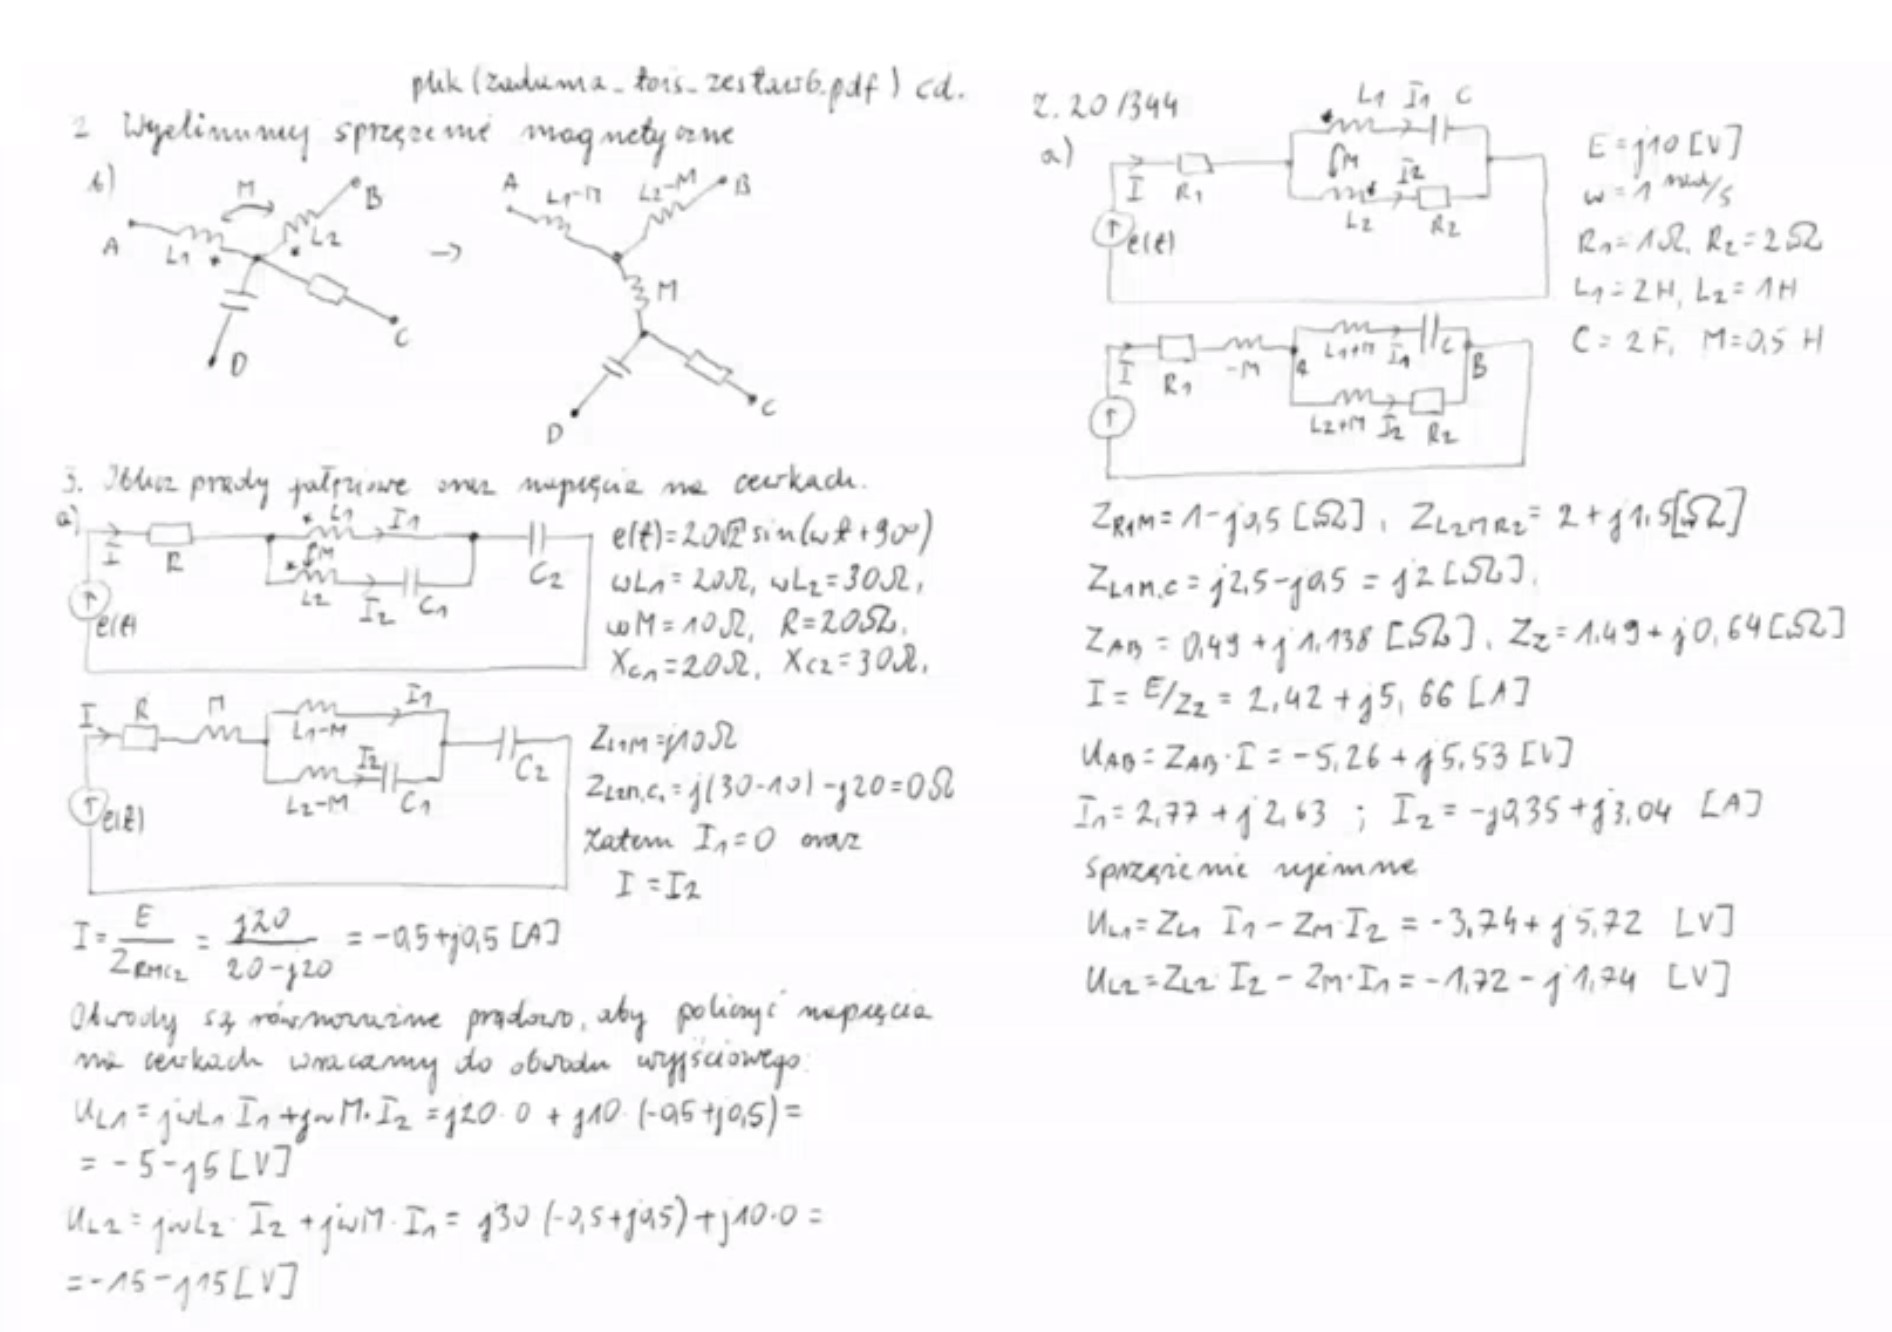 plik (zadania_tois_zestaw6.pdf) cd.
2 Wyeliminuj sprzężenie magnetyczne
b)
M
A
L1
L2
B
C
D
→
A
L1-M
L2-M
B
M
C
D
3. Oblicz prądy gałęziowe oraz napięcia na cewkach.
a)
I
R
L1
I1
M
L2
I2
C1
C2
e(t)
e(t)=20√2 sin(ωt+90°)
ωL1=20Ω, ωL2=30Ω,
ωM=10Ω, R=20Ω,
XC1=20Ω, XC2=30Ω,
I
R
M
L1-M
I1
I2
L2-M
C1
C2
e(t)
ZL1M=j10Ω
ZL2M,C1=j(30-10)-j20=0Ω
Zatem I1=0 oraz
I=I2
I=E/ZRMC2 = j20/20-j20 = -0,5+j0,5 [A]
Obwody są równoważne prądowo, aby policzyć napięcia
na cewkach wracamy do obwodu wyjściowego:
UL1=jωL1 I1+jωM·I2=j20·0+j10·(-0,5+j0,5)=
=-5-j5[V]
UL2=jωL2·I2+jωM·I1=j30(-0,5+j0,5)+j10·0=
=-15-j15[V]
Z.20/344
a)
L1 I1 C
M
I
R1
I2
L2
R2
e(t)
E=j10[V]
ω=1 rad/s
R1=1Ω, R2=2Ω
L1=2H, L2=1H
C=2F, M=0,5H
I
R1
-M
A
L1+M
I1
C
B
L2+M
I2
R2
ZR1M=1-j0,5[Ω], ZL2MR2=2+j1,5[Ω]
ZL1M,C=j2,5-j0,5=j2[Ω],
ZAB=0,49+j1,138[Ω], ZZ=1.49+j0,64[Ω]
I=E/ZZ=2,42+j5,66[A]
UAB=ZAB·I=-5,26+j5,53[V]
I1=2,77+j2,63 ; I2=-j0,35+j3,04 [A]
Sprzężenie ujemne
UL1=ZL1 I1-ZM·I2=-3,74+j5,72 [V]
UL2=ZL2·I2-ZM·I1=-1,72-j1,74 [V]